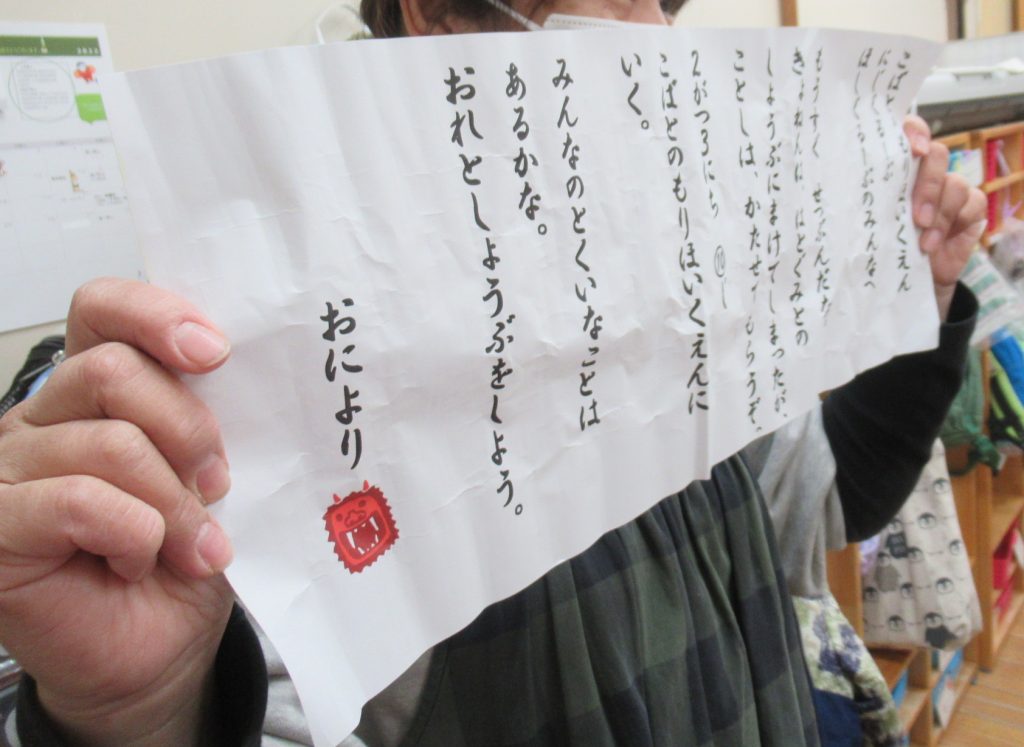 こばとのもりほいくえん
にじぐるーぷ
ほしぐるーぷのみんなへ
もうすぐ せつぶんだな
きょねんは、はとぐみとの
しょうぶにまけてしまったが、
ことしは、かたせてもらうぞ。
2がつ3にち
こばとのもりほいくえんに
いく。
みんなのとくいなことは
あるかな。
おれとしょうぶをしよう。
おにより